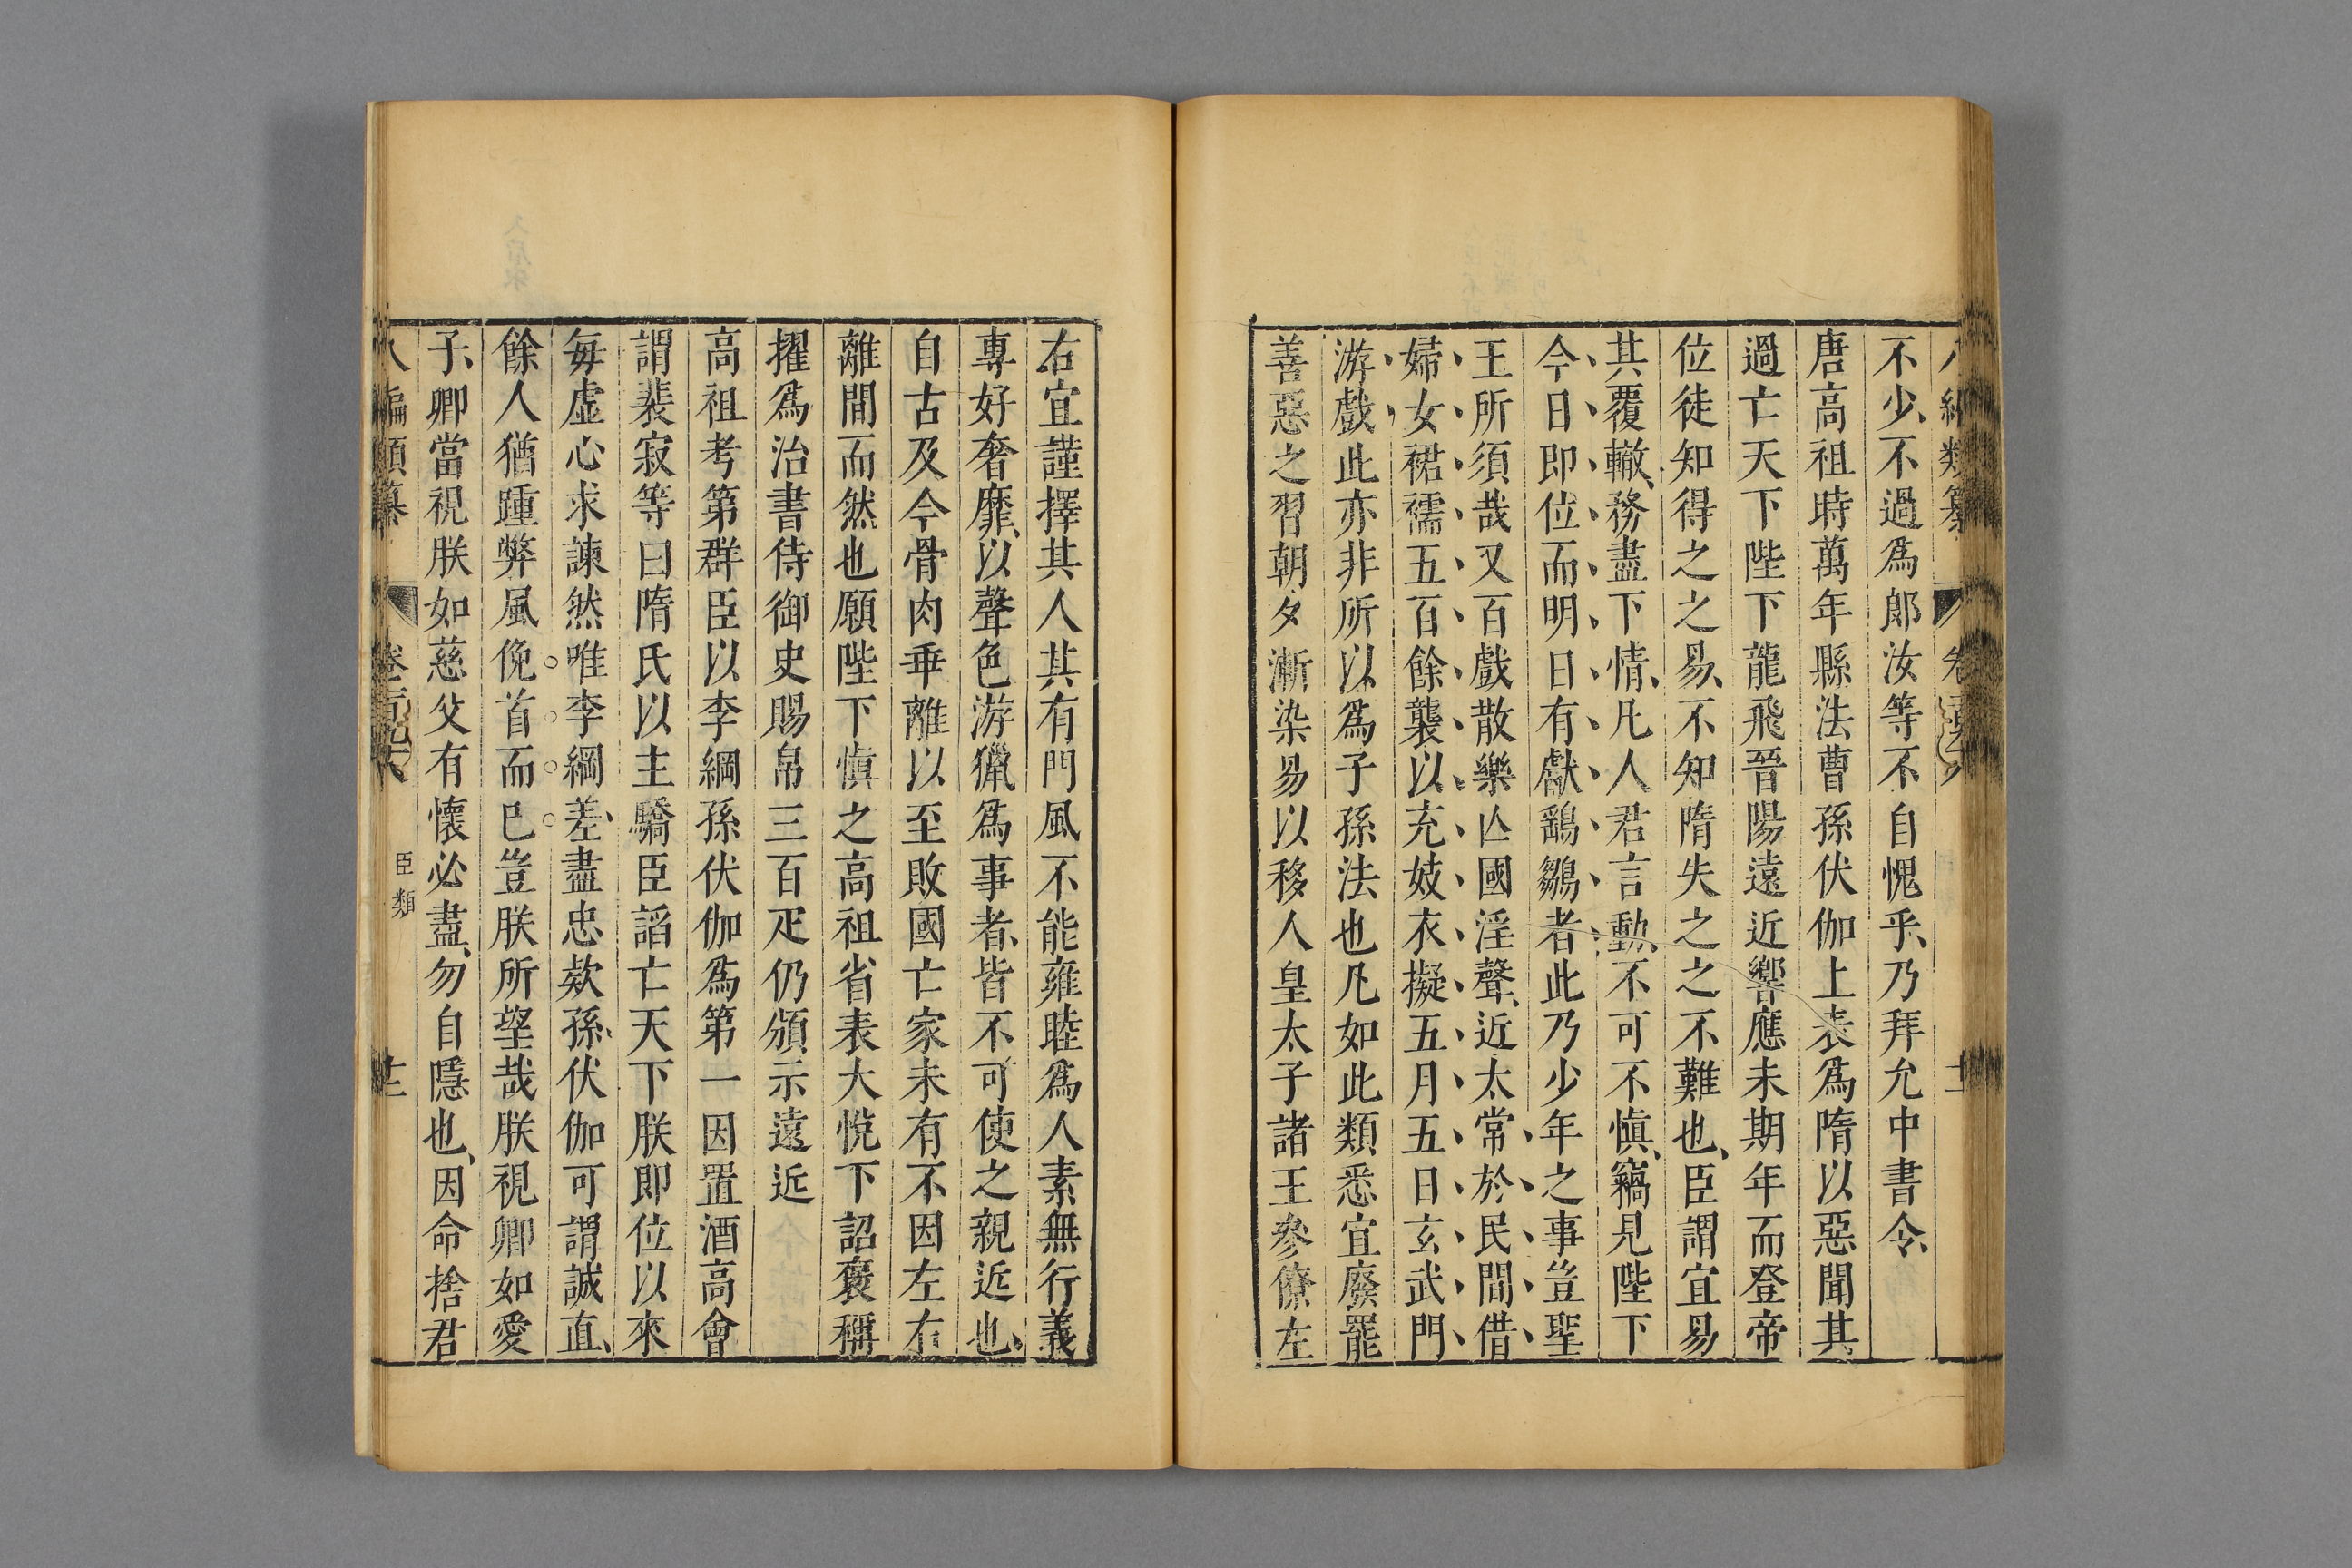 不少、不過爲郎汝等不自愧乎、乃拜允中書令、
唐高祖時萬年縣法曹孫伏伽上表爲隋以惡聞其
過亡天下陛下龍飛晉陽遠近響應未期年而登帝
位徒知得之之易、不知隋失之之不難也、臣謂宜易
其覆轍、務盡下情、凡人君言動、不可不慎、竊見陛下
今日即位而明日有獻鷂鶵者、此乃少年之事豈聖
王所須哉又百戲散樂亾國淫聲、近太常於民間借
婦女裙襦五百餘襲以充妓衣擬五月五日玄武門
游戲此亦非所以爲子孫法也凡如此類悉宜廢罷
善惡之習朝夕漸染易以移人皇太子諸王參僚左
右宜謹擇其人其有門風不能雍睦爲人素無行義
專好奢靡、以聲色游獵爲事者、皆不可使之親近也、
自古及今骨肉乖離以至敗國亡家未有不因左右
離間而然也願陛下慎之高祖省表大悅下詔褒稱
擢爲治書侍御史賜帛三百疋仍頒示遠近
高祖考第群臣以李綱孫伏伽爲第一因置酒高會
謂裴寂等曰隋氏以主驕臣謟亡天下朕即位以來
每虛心求諫然唯李綱差盡忠欵孫伏伽可謂誠直、
餘人猶踵弊風俛首而已豈朕所望哉朕視卿如愛
子、卿當視朕如慈父有懷必盡、勿自隱也、因命捨君
八編類纂
臣類